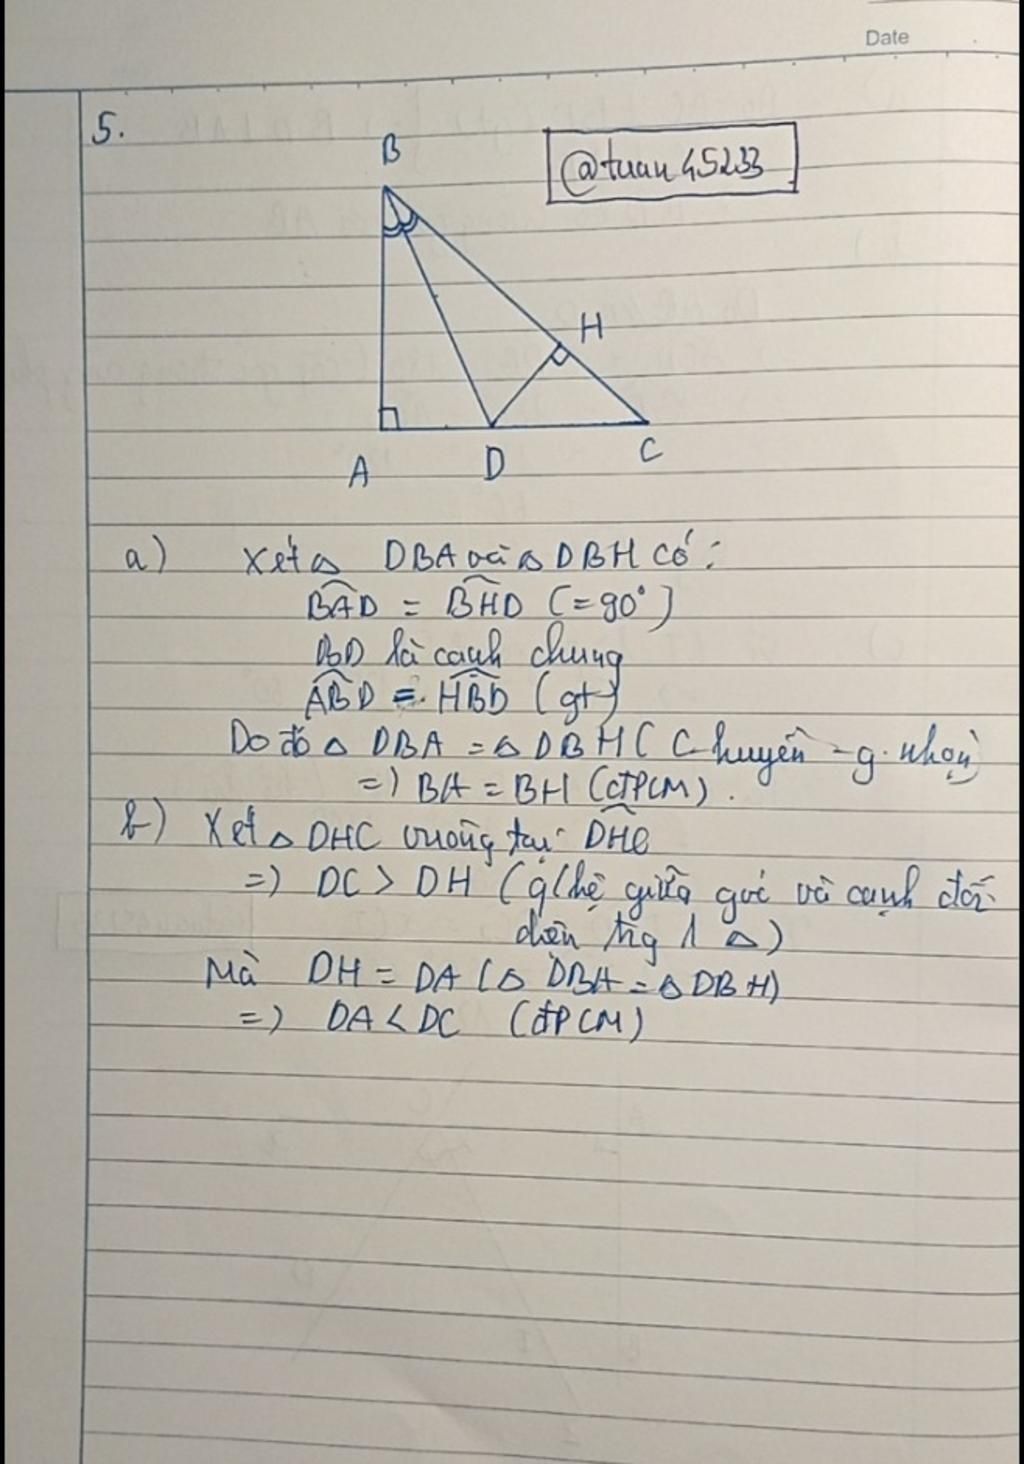 Date
5.
@tuan45233
B
H
A
D
C
a) Xét △ DBA và △ DBH có:
BAD = BHD (=90°)
BD là cạnh chung
ABD = HBD (gt)
Do đó △ DBA = △ DBH ( C huyền - g. nhọn)
=) BA = BH (đPCM).
b) Xét △ DHC vuông tại DHC
=) DC > DH (q/hệ giữa góc và cạnh đối
diện trg 1 △)
Mà DH = DA (△ DBA = △ DBH)
=) DA < DC (đPCM)